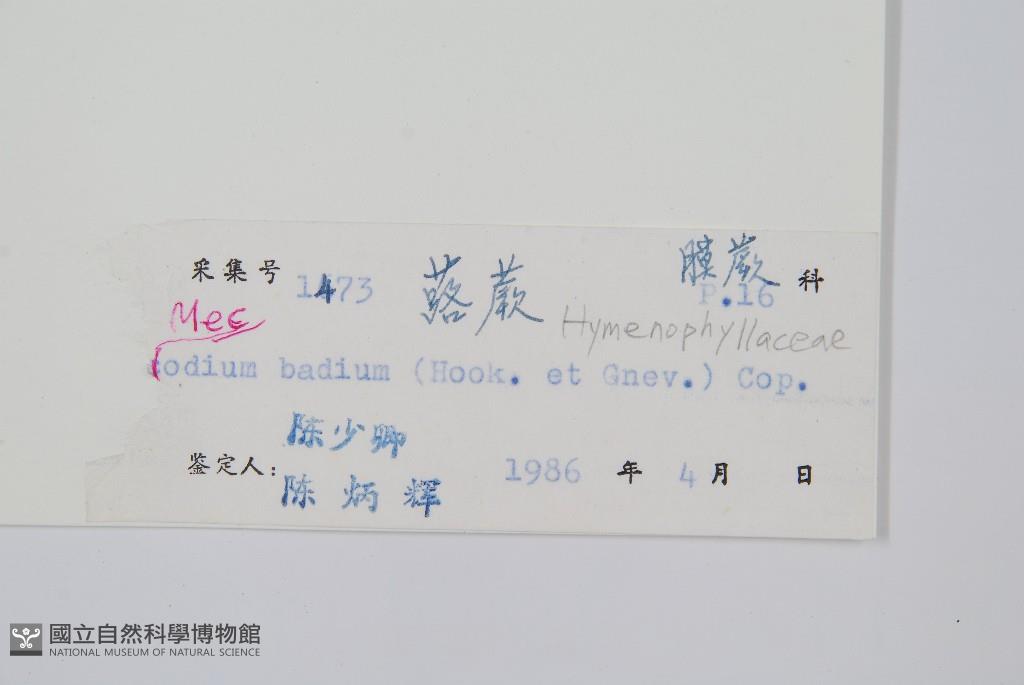 采集号 1473 蕗蕨 膜蕨 科
P.16
Mec Hymenophyllaceae
codium badium (Hook. et Gnev.) Cop.
陈少卿
鉴定人: 1986 年 4 月 日
陈炳辉
國立自然科學博物館
NATIONAL MUSEUM OF NATURAL SCIENCE